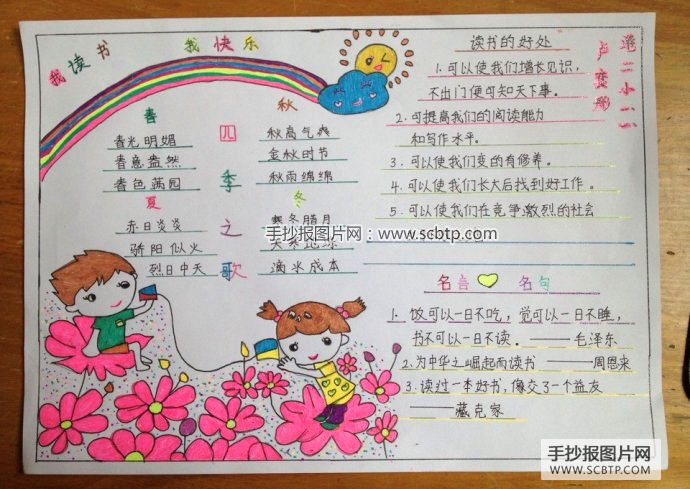 我读书 我快乐
春
春光明媚
春意盎然
春色满园
夏
赤日炎炎
骄阳似火
烈日中天
四季之歌
秋
秋高气爽
金秋时节
秋雨绵绵
冬
寒冬腊月
滴水成本
读书的好处
1.可以使我们增长见识，
不出门便可知天下事。
2.可提高我们的阅读能力
和写作水平。
3.可以使我们变的有修养。
4.可以使我们长大后找到好工作。
5.可以使我们在竞争激烈的社会
名言 名句
1.饭可以一日不吃，觉可以一日不睡，
书不可以一日不读。——毛泽东
2.为中华之崛起而读书 ——周恩来
3.读过一本好书，像交了一个益友
——臧克家
手抄报图片网 www.scbtp.com
手抄报图片网
WWW.SCBTP.COM